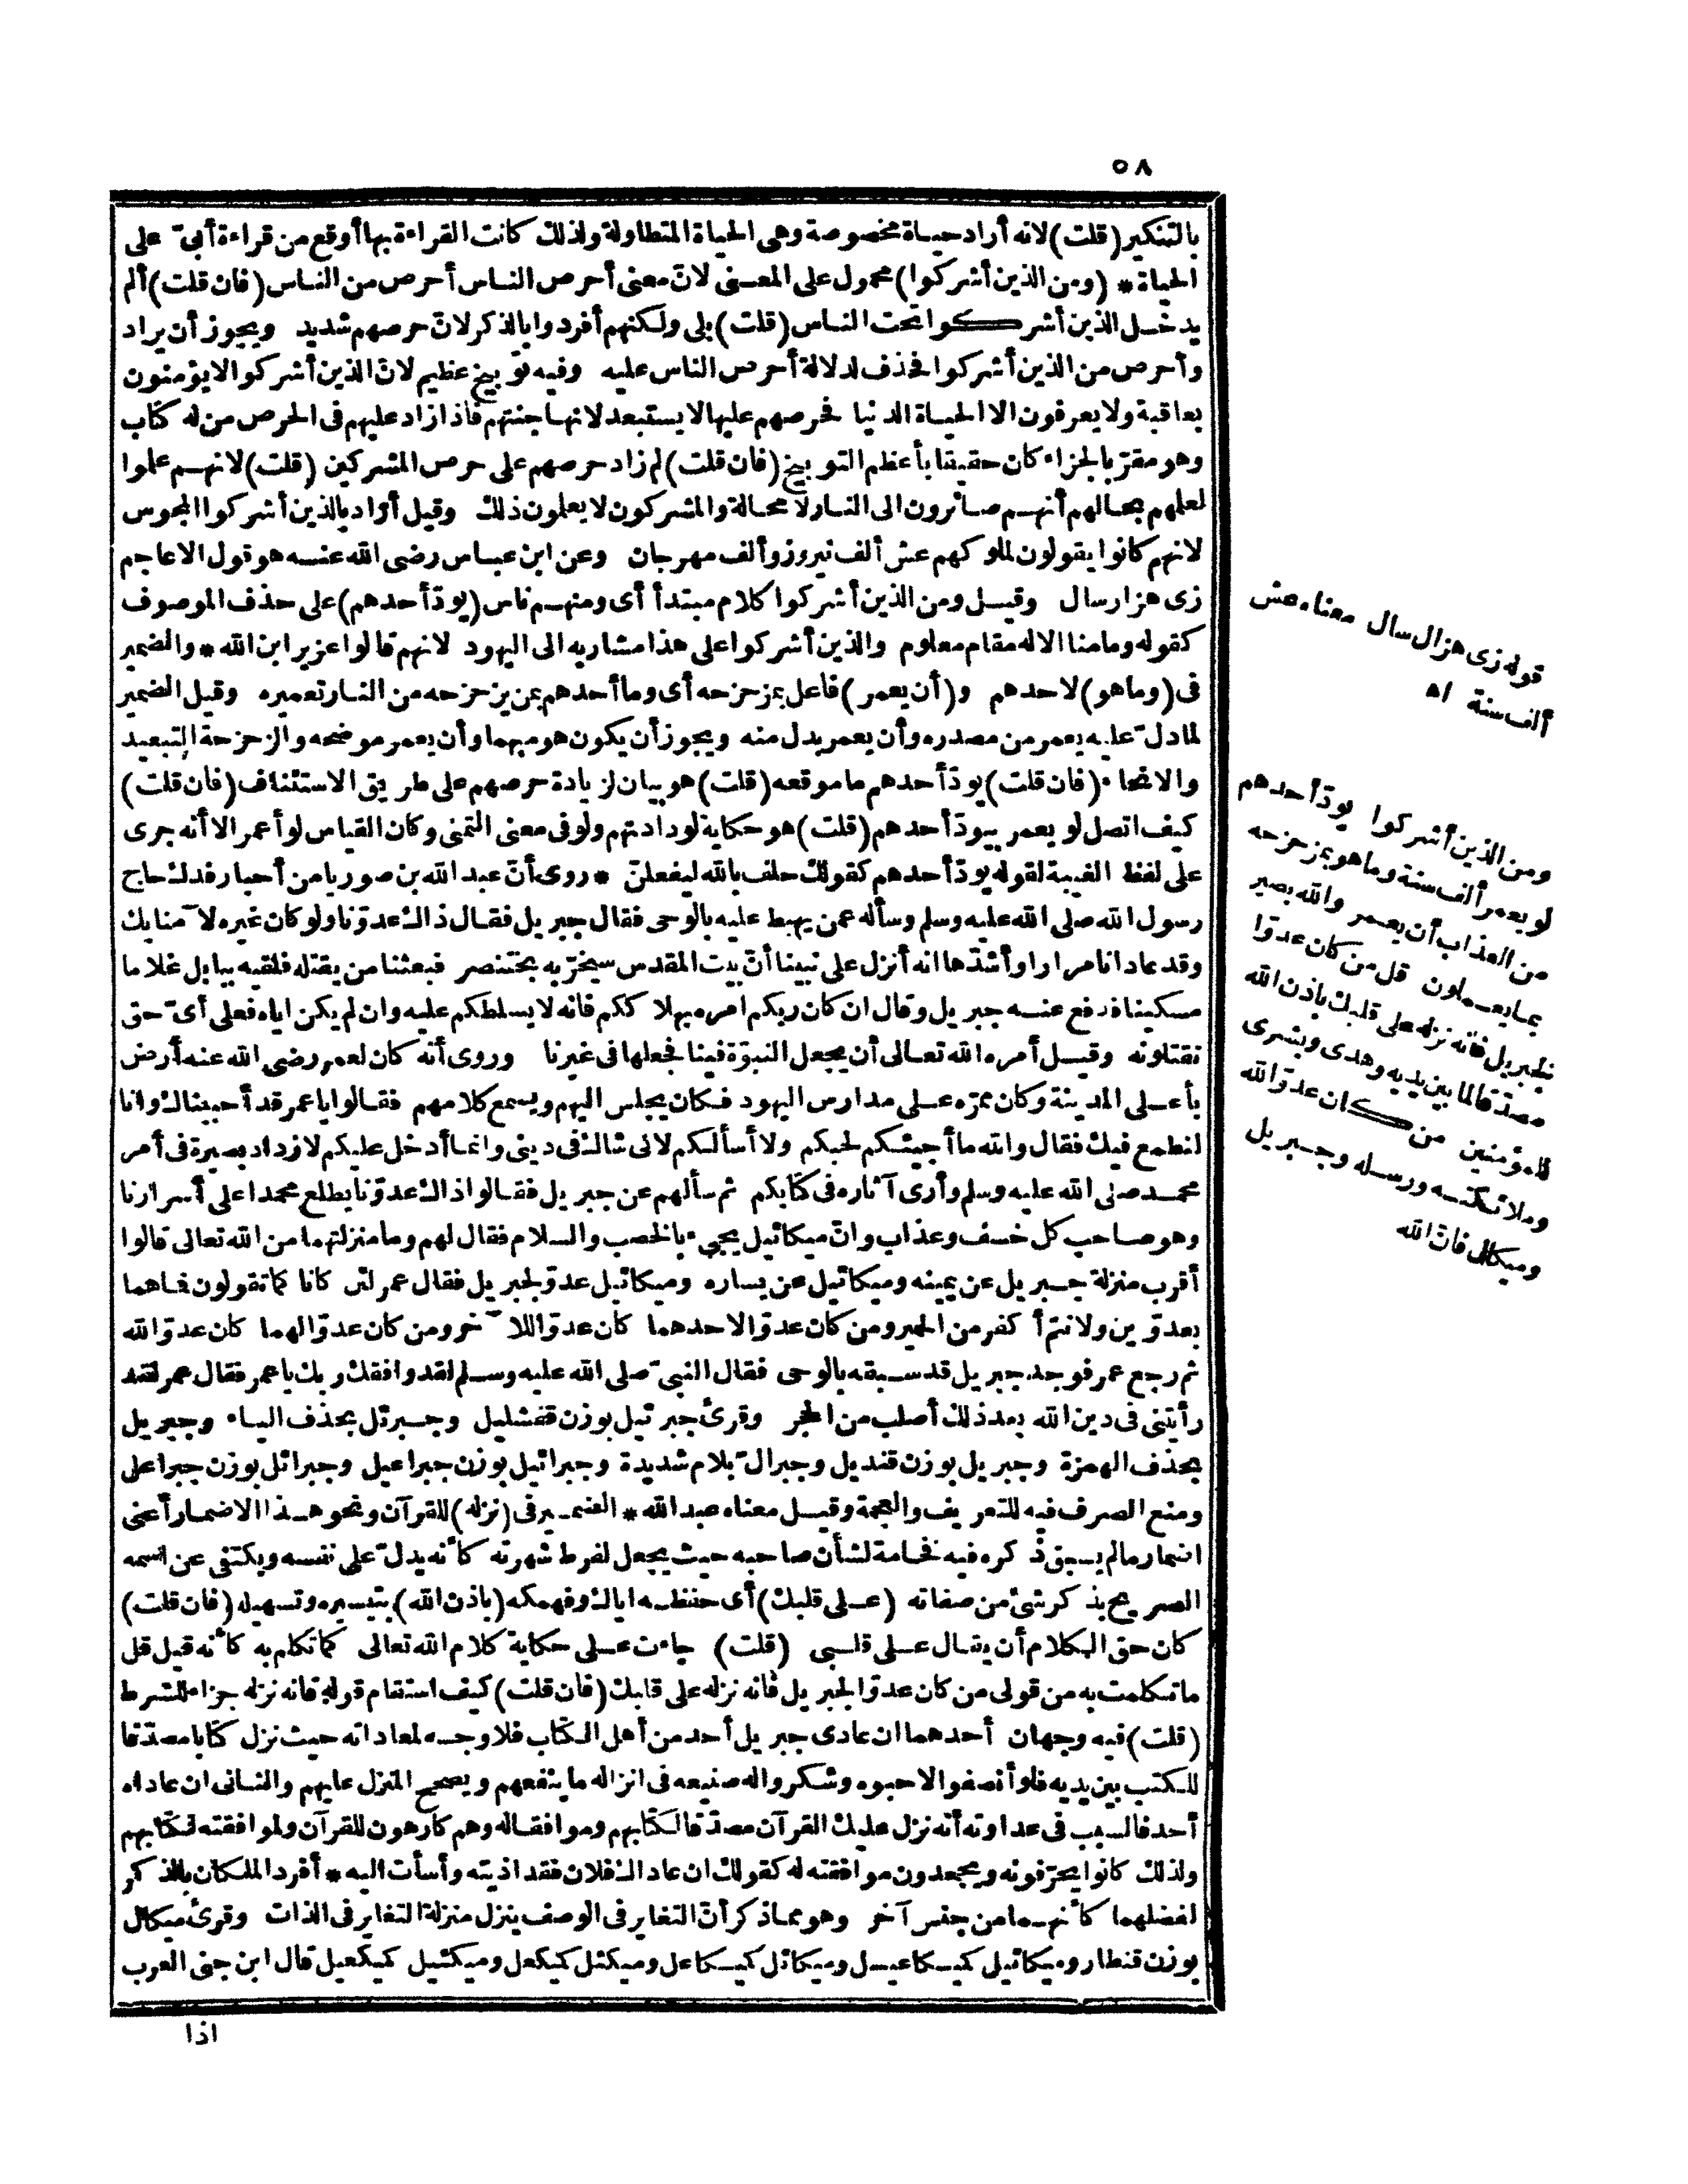 ٥٨
بالتنكير (قلت) لانه أراد حياة مخصوصة وهى الحياة المتطاولة ولذلك كانت القراءة بها أوقع من قراءة أبىّ على
الحياة * (ومن الذين أشركوا) محمول على المعنى لانّ معنى أحرص الناس أحرص من الناس (فان قلت) ألم
يدخل الذين أشركوا تحت الناس (قلت) بلى ولكنهم أفردوا بالذكر لانّ حرصهم شديد ويجوز أن يراد
وأحرص من الذين أشركوا فحذف لدلالة أحرص الناس عليه وفيه توبيخ عظيم لانّ الذين أشركوا لا يؤمنون
بعاقبة ولا يعرفون الا الحياة الدنيا فحرصهم عليها لا يستبعد لانها جنتهم فاذا زاد عليهم فى الحرص من له كتاب
وهو مقرّ بالجزاء كان حقيقا بأعظم التوبيخ (فان قلت) لم زاد حرصهم على حرص المشركين (قلت) لانهم علموا
لعلمهم بحالهم أنهم صائرون الى النار لا محالة والمشركون لا يعلمون ذلك وقيل أراد بالذين أشركوا المجوس
لانهم كانوا يقولون لملوكهم عش ألف نيروز وألف مهرجان وعن ابن عباس رضى الله عنه هو قول الاعاجم
زى هزار سال وقيل ومن الذين أشركوا كلام مبتدأ أى ومنهم ناس (يودّ أحدهم) على حذف الموصوف
كقوله وما منا الا له مقام معلوم والذين أشركوا على هذا مشار به الى اليهود لانهم قالوا عزير ابن الله * والضمير
فى (وما هو) لاحدهم و (أن يعمر) فاعل بمزحزحه أى وما أحدهم بمن يزحزحه من النار تعميره وقيل الضمير
لما دلّ عليه يعمر من مصدره وأن يعمر بدل منه ويجوز أن يكون هو مبهما وأن يعمر موضحه والزحزحة التبعيد
والانحاء (فان قلت) يودّ أحدهم ما موقعه (قلت) هو بيان لزيادة حرصهم على طريق الاستئناف (فان قلت)
كيف اتصل لو يعمر بيودّ أحدهم (قلت) هو حكاية لودادتهم ولو فى معنى التمنى وكان القياس لو أعمر الا أنه جرى
على لفظ الغيبة لقوله يودّ أحدهم كقولك حلف بالله ليفعلنّ * روى أنّ عبد الله بن صوريا من أحبار فدك حاج
رسول الله صلى الله عليه وسلم وسأله عمن يهبط عليه بالوحى فقال جبريل فقال ذاك عدوّنا ولو كان غيره لآمنا بك
وقد عادانا مرارا وأشدّها انه أنزل على نبينا أنّ بيت المقدس سيخرّبه بختنصر فبعثنا من يقتله فلقيه ببابل غلاما
مسكينا فدفع عنه جبريل وقال ان كان ربكم امره بهلاككم فانه لا يسلطكم عليه وان لم يكن اياه فعلى أىّ حق
تقتلونه وقيل أمره الله تعالى أن يجعل النبوّة فينا فجعلها فى غيرنا وروى أنه كان لعمر رضى الله عنه أرض
بأعلى المدينة وكان ممرّه على مدارس اليهود فكان يجلس اليهم ويسمع كلامهم فقالوا يا عمر قد أحببناك وانا
لنطمع فيك فقال والله ما أجيئكم لحبكم ولا أسألكم لانى شاك فى دينى وانما أدخل عليكم لازداد بصيرة فى أمر
محمد صلى الله عليه وسلم وأرى آثاره فى كتابكم ثم سألهم عن جبريل فقالوا ذاك عدوّنا يطلع محمدا على أسرارنا
وهو صاحب كل خسف وعذاب وانّ ميكائيل يجىء بالخصب والسلام فقال لهم وما منزلتهما من الله تعالى قالوا
أقرب منزلة جبريل عن يمينه وميكائيل عن يساره وميكائيل عدوّ لجبريل فقال عمر لئن كانا كما تقولون فما هما
بعدوّين ولانتم أكفر من الحمير ومن كان عدوّا لاحدهما كان عدوّا للآخر ومن كان عدوّا لهما كان عدوّا لله
ثم رجع عمر فوجد جبريل قد سبقه بالوحى فقال النبىّ صلى الله عليه وسلم لقد وافقك ربك يا عمر فقال عمر لقد
رأيتنى فى دين الله بعد ذلك أصلب من الحجر وقرئ جبرئيل بوزن قفشليل وجبرئل بحذف الياء وجبريل
بحذف الهمزة وجبريل بوزن قنديل وجبرالّ بلام شديدة وجبرائيل بوزن جبراعيل وجبرائل بوزن جبراعل
ومنع الصرف فيه للتعريف والعجمة وقيل معناه عبد الله * الضمير فى (نزله) للقرآن ونحو هذا الاضمار أعنى
اضمار ما لم يسبق ذكره فيه فخامة لشأن صاحبه حيث يجعل لفرط شهرته كأنه يدلّ على نفسه ويكتفى عن اسمه
الصريح بذكر شئ من صفاته (على قلبك) أى حفظه اياك وفهمكه (باذن الله) بتيسيره وتسهيله (فان قلت)
كان حق الكلام أن يقال على قلبى (قلت) جاءت على حكاية كلام الله تعالى كما تكلم به كأنه قيل قل
ما تكلمت به من قولى من كان عدوّا لجبريل فانه نزله على قلبك (فان قلت) كيف استقام قوله فانه نزله جزاء للشرط
(قلت) فيه وجهان أحدهما ان عادى جبريل أحد من أهل الكتاب فلا وجه لمعاداته حيث نزل كتابا مصدّقا
للكتب بين يديه فلو أنصفوا لاحبوه وشكروا له صنيعه فى انزاله ما ينفعهم ويصحح المنزل عليهم والثانى ان عاداه
أحد فالسبب فى عداوته أنه نزل عليك القرآن مصدّقا لكتابهم وموافقا له وهم كارهون للقرآن ولموافقته لكتابهم
ولذلك كانوا يحرّفونه ويجحدون موافقته له كقولك ان عاداك فلان فقد اذيته وأسأت اليه * أفرد الملكان بالذكر
لفضلهما كأنهما من جنس آخر وهو مما ذكر أنّ التغاير فى الوصف ينزل منزلة التغاير فى الذات وقرئ ميكال
بوزن قنطار وميكائيل كميكاعيل وميكائل كميكاعل وميكئل كميكعل وميكئيل كميكعيل قال ابن جنى العرب
اذا
قوله زى هزال سال معناه عش
ألف سنة اه
ومن الذين أشركوا يودّ أحدهم
لو يعمر ألف سنة وما هو بمزحزحه
من العذاب أن يعمر والله بصير
بما يعملون قل من كان عدوّا
لجبريل فانه نزله على قلبك باذن الله
مصدّقا لما بين يديه وهدى وبشرى
للمؤمنين من كان عدوّا لله
وملائكته ورسله وجبريل
وميكال فانّ الله